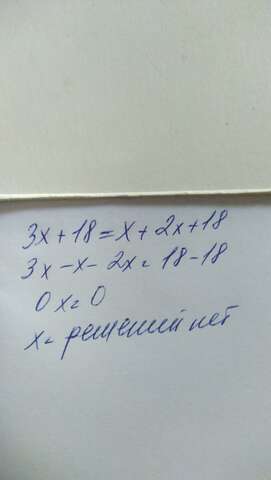 3x+18=x+2x+18
3x-x-2x=18-18
0x=0
x= решений нет